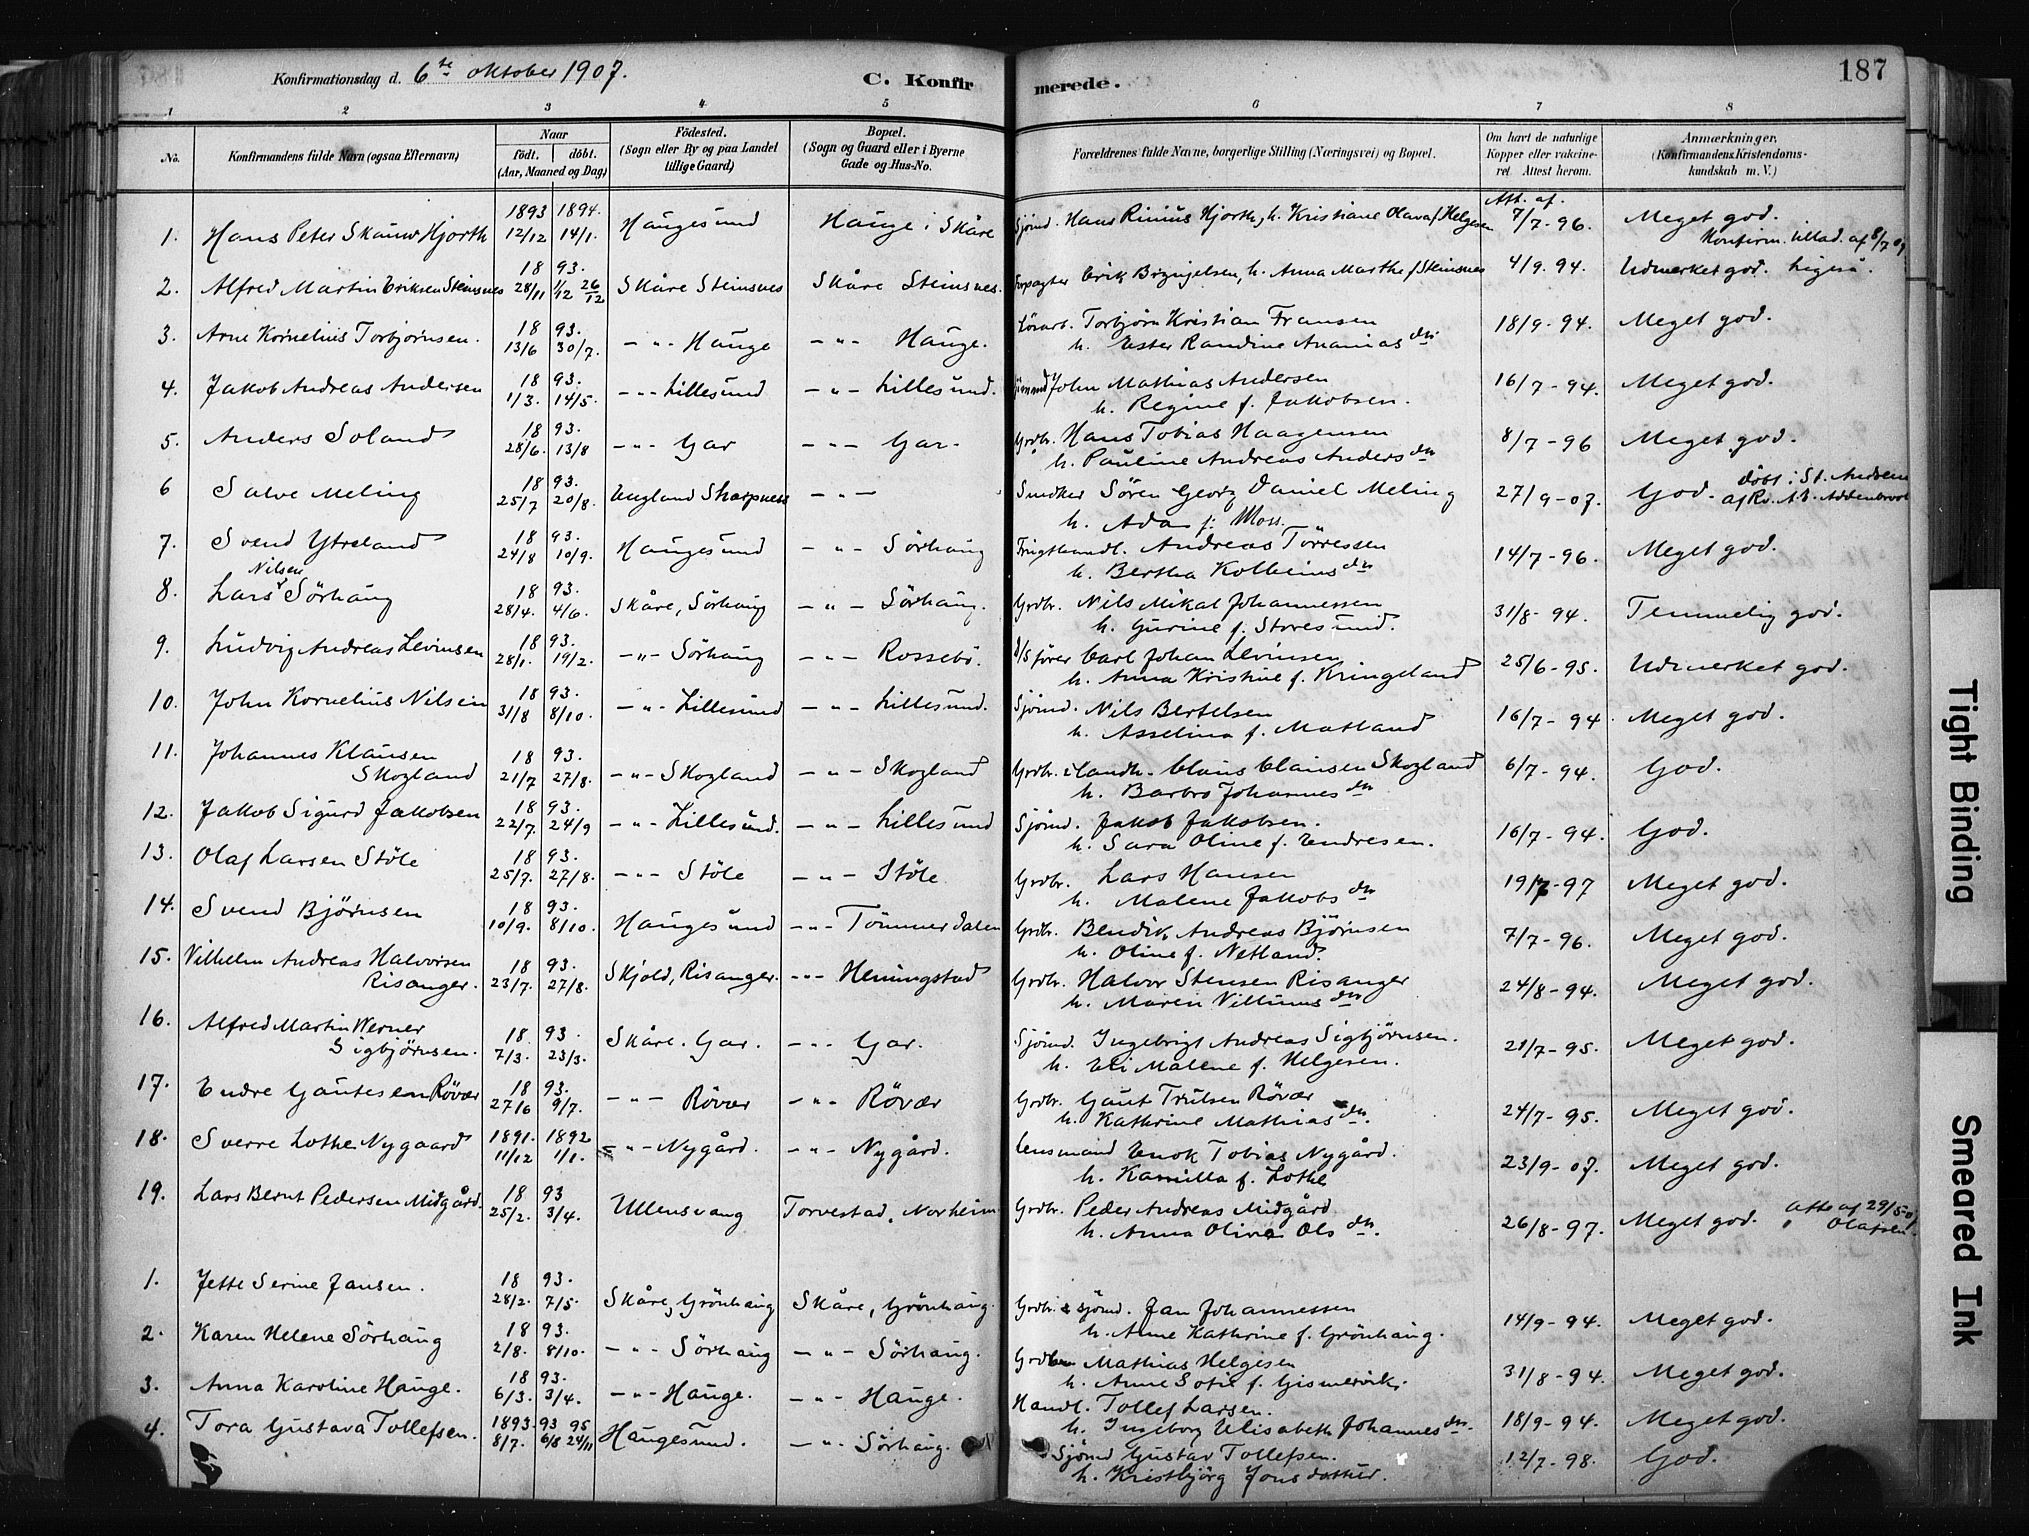 Konfirmationsdag d. 6te oktober 1907.
C. Konfirmerede.
187
1 2 3 4 5 6 7 8
No.
Konfirmandens fulde Navn (ogsaa Efternavn)
Naar
født. | döbt.
(Aar, Maaned og Dag)
Födested.
(Sogn eller By og paa Landet
tillige Gaard)
Bopæl.
(Sogn og Gaard eller i Byerne
Gade og Hus-No.
Forældrenes fulde Navne, borgerlige Stilling (Næringsvei) og Bopæl.
Om havt de naturlige
Kopper eller vakcine-
ret. Attest herom.
Anmærkninger.
(Konfirmandens Kristendoms-
kundskab m. V.)
Att. af.
1. Hans Peter Skauw Hjorth 1893 12/12 1894. 14/1. Haugesund Hauge i Skåre Sjömd. Hans Rinius Hjorth, h. Kristiane Olava f. Helgesen 7/7-96. Meget god.
Konfirm. tillad. af 8/7 07
2. Alfred Martin Eriksen Steinsnes 18 93. 28/11 1/12 26/12 Skåre Steinsnes Skåre Steinsnes. Forpagter Erik Bryngelsen, h. Anna Marthe f. Steinsnes 4/9. 94. Udmerket god. ligeså.
3. Arne Kornelius Torbjørnsen. 18 93. 13/6 30/7. -"- Hauge -"- Hauge. Torbjörn Kristian Fransen
h. Ester Randine Ananias dtr 18/9-94. Meget god.
4. Jakob Andreas Andersen 18 93. 1/3. 14/5. -"- Lillesund -"- Lillesund. John Mathias Andersen
h. Regine f. Jakobsen. 16/7-94. Meget god.
5. Anders Soland 18 93. 28/6. 13/8 -"- Gar -"- Gar. Grdbr. Hans Tobias Haagensen
h. Pauline Andreas Anders dtr 8/7-96 Meget god.
6 Salve Meling 18 93. 25/7 20/8. England Sharpness -"- Snedker Sören Georg Daniel Meling
h. Ada f. Moss. 27/9-07. God. döbt i St. Andrew
af Rv. A. B. Addenbrook
7. Svend Ytreland 18 93. 24/8 10/9. Haugesund -"- Sörhaug Frugthandl. Andreas Törressen
h. Bertha Kolbeins dtr 14/7-96. Meget god.
8. Lars Nilsen Sörhaug 18 93. 28/4. 4/6. Skåre, Sörhaug -"- Sörhaug. Grdbr. Nils Mikal Johannessen
h. Gurine f. Storesund. 31/8-94. Temmelig god.
9. Ludvig Andreas Levinsen 18 93. 28/1. 19/2. -"- Sörhaug -"- Rossebö. D/S förer Carl Johan Levinsen
h. Anna Kristine f. Kringeland 25/6-95. Udmerket god.
10. John Kornelius Nilsen 18 93. 31/8 8/10. -"- Lillesund -"- Lillesund. Sjömd. Nils Bertelsen
h. Asselina f. Matland 16/7-94 Meget god.
11. Johannes Klausen
Skogland 18 93. 21/7 27/8. -"- Skogland -"- Skogland Grdbr. & landh. Claus Clausen Skogland
h. Barbro Johannes dtr 6/7-94. God.
12. Jakob Sigurd Jakobsen 18 93. 22/7. 24/9 -"- Lillesund. -"- Lillesund Sjömd. Jakob Jakobsen.
h. Sara Oline f. Endresen. 16/7-94. God.
13. Olaf Larsen Stöle 18 93. 25/7. 27/8. -"- Stöle -"- Stöle Grdbr. Lars Hansen
h. Malene Jakobs dtr 19/7-97 Meget god.
14. Svend Björnsen 18 93. 10/9. 8/10. Haugesund -"- Tömmerdalen Grdbr. Bendik Andreas Björnsen
h. Oline f. Netland. 7/7-96. Meget god.
15. Vilhelm Andreas Halvorsen
Risanger. 18 93. 23/7. 27/8. Skjold, Risanger. -"- Hemingstad Grdbr. Halvor Stensen Risanger
h. Maren Villums dtr 24/8-94. Meget god.
16. Alfred Martin Werner
Sigbjörnsen. 18 93. 7/3. 23/3. Skåre. Gar. -"- Gar. Sjömd. Ingebrigt Andreas Sigbjörnsen.
h. Eli Malene f. Helgesen. 21/7-95. Meget god.
17. Endre Gautesen Rövær 18 93. 27/6 9/7. -"- Rövær -"- Rövær Grdbr. Gaut Trulsen Rövær
h. Kathrine Mathias dtr. 24/7-95. Meget god.
18. Sverre Lothe Nygaard 1891. 11/12 1892 1/1. -"- Nygård. -"- Nygård. Lensmand Enok Tobias Nygård.
h. Kamilla f. Lothe 23/9-07. Meget god.
19. Lars Bernt Pedersen Midgård. 18 93 25/2. 3/4. Ullensvang Torvestad, Norheim Grdbr. Peder Andreas Midgård
h. Anna Olive Ols dtr. 26/8-97. Meget god. Atts af 29/5-07
" Olafsen.
1. Jette Serine Jansen. 18 93. 28/2. 7/5. Skåre, Grönhaug Skåre, Grönhaug. Grdbr. & sjömd. Jan Johannessen
h. Anne Kathrine f. Grönhaug. 14/9-94. Meget god.
2. Karen Helene Sörhaug 18 93. 2/8. 8/10. -"- Sörhaug -"- Sörhaug. Grdbr Mathias Helgesen
h. Anne Sofie f. Gismervik. 31/8-94. Meget god.
3. Anna Karoline Hauge. 18 93. 6/3. 3/4. -"- Hauge. -"- Hauge. Handl. Tollef Larsen.
h. Ingeborg Elisabeth Johannes dtr. 18/9-94. Meget god.
4. Tora Gustava Tollefsen. 1893. 8/7. 93 6/8 95 24/11 Haugesund. -"- Sörhaug. Sjömd Gustav Tollefsen.
h. Kristbjörg Jons datter. 12/7-98. God.
Tight Binding
Smeared Ink